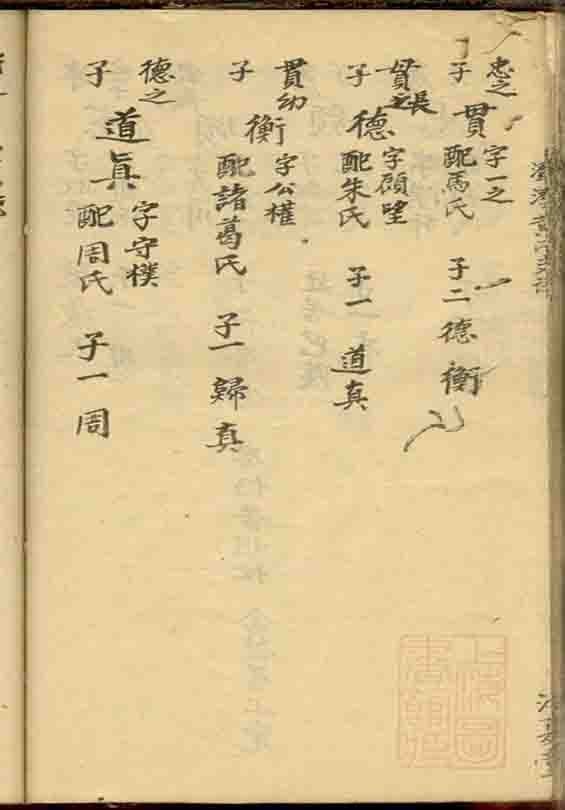 忠之子 貫 字一之 配馬氏 子二 德 衡
貫之長子 德 字顧望 配朱氏 子一 道真
貫幼子 衡 字公權 配諸葛氏 子一 歸真
德之子 道真 字守樸 配周氏 子一 周